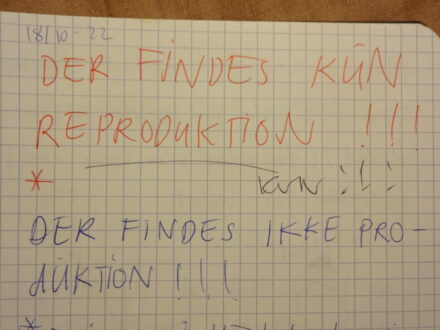 18/10-22
DER FINDES KŪN
REPRODUKTION !!!
* KUN !!!
DER FINDES IKKE PRO-
DUKTION !!!
*